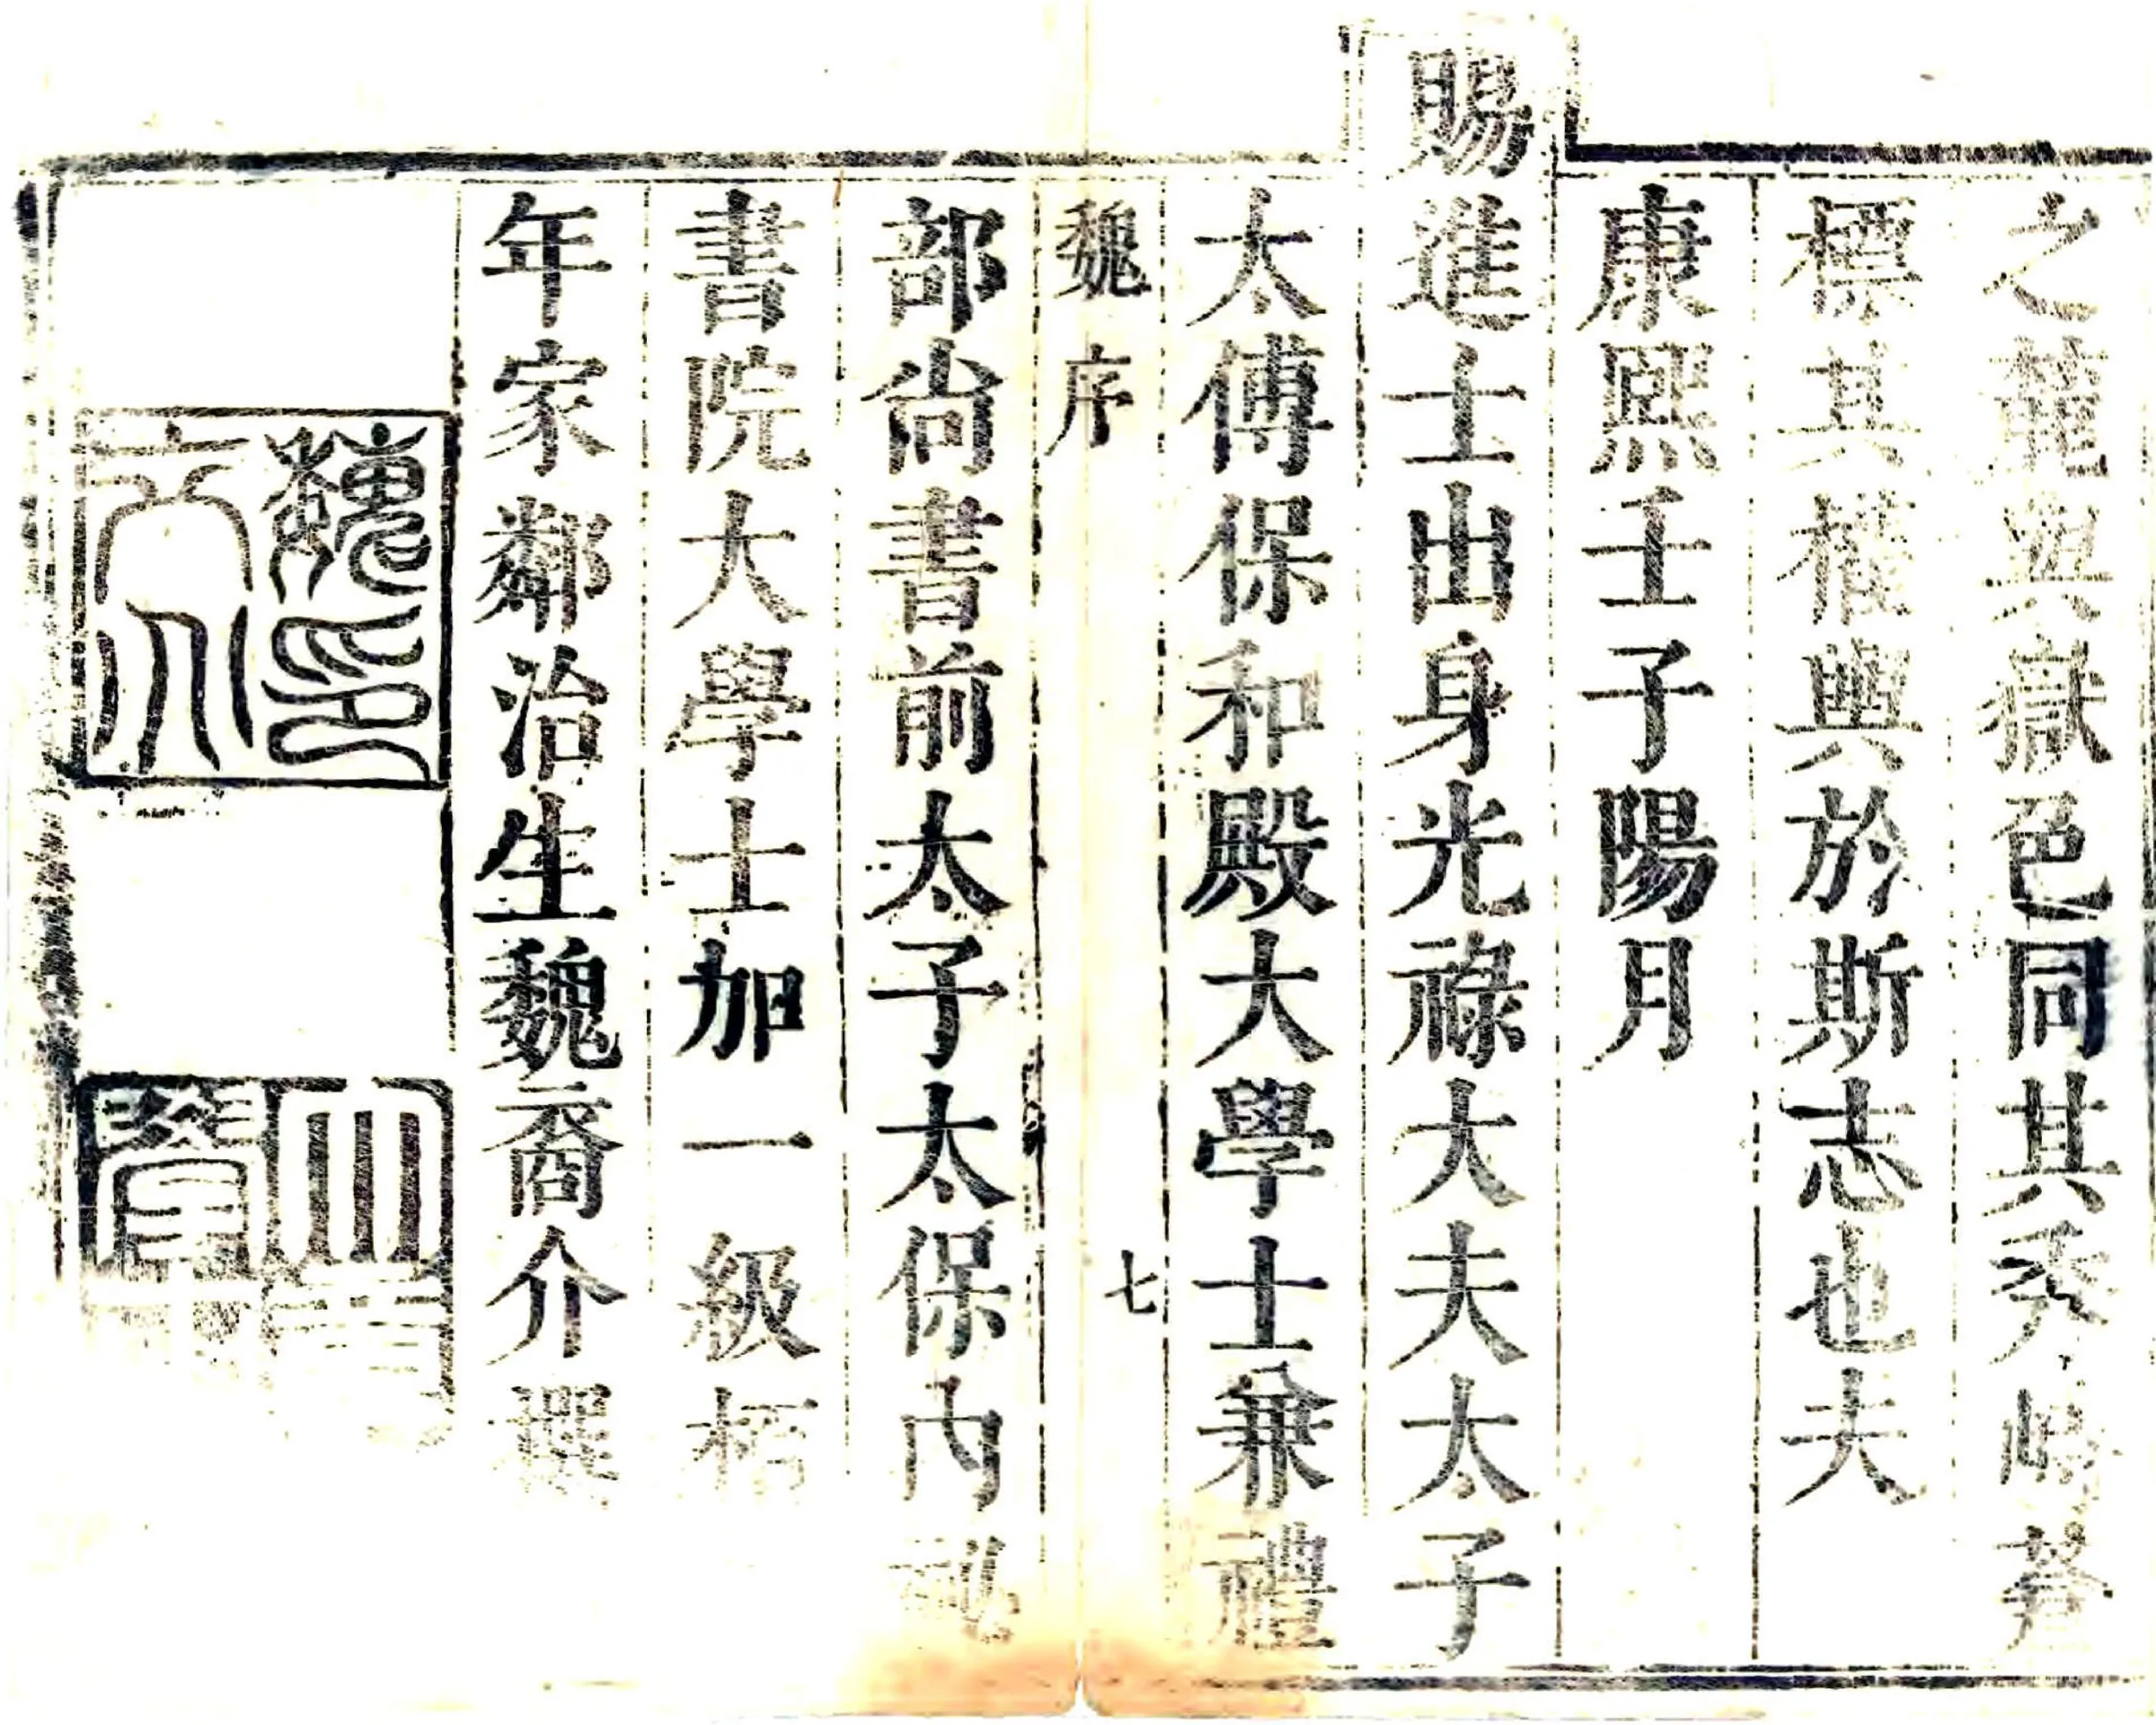 之麓與嶽色同其秀峙簪
標其權輿於斯志也夫
康熙壬子陽月
賜進士出身光祿大夫太子
太傅保和殿大學士兼禮
魏序
七
部尙書前太子太保內祕
書院大學士加一級栢
年家鄰治生魏裔介撰
魏裔介印